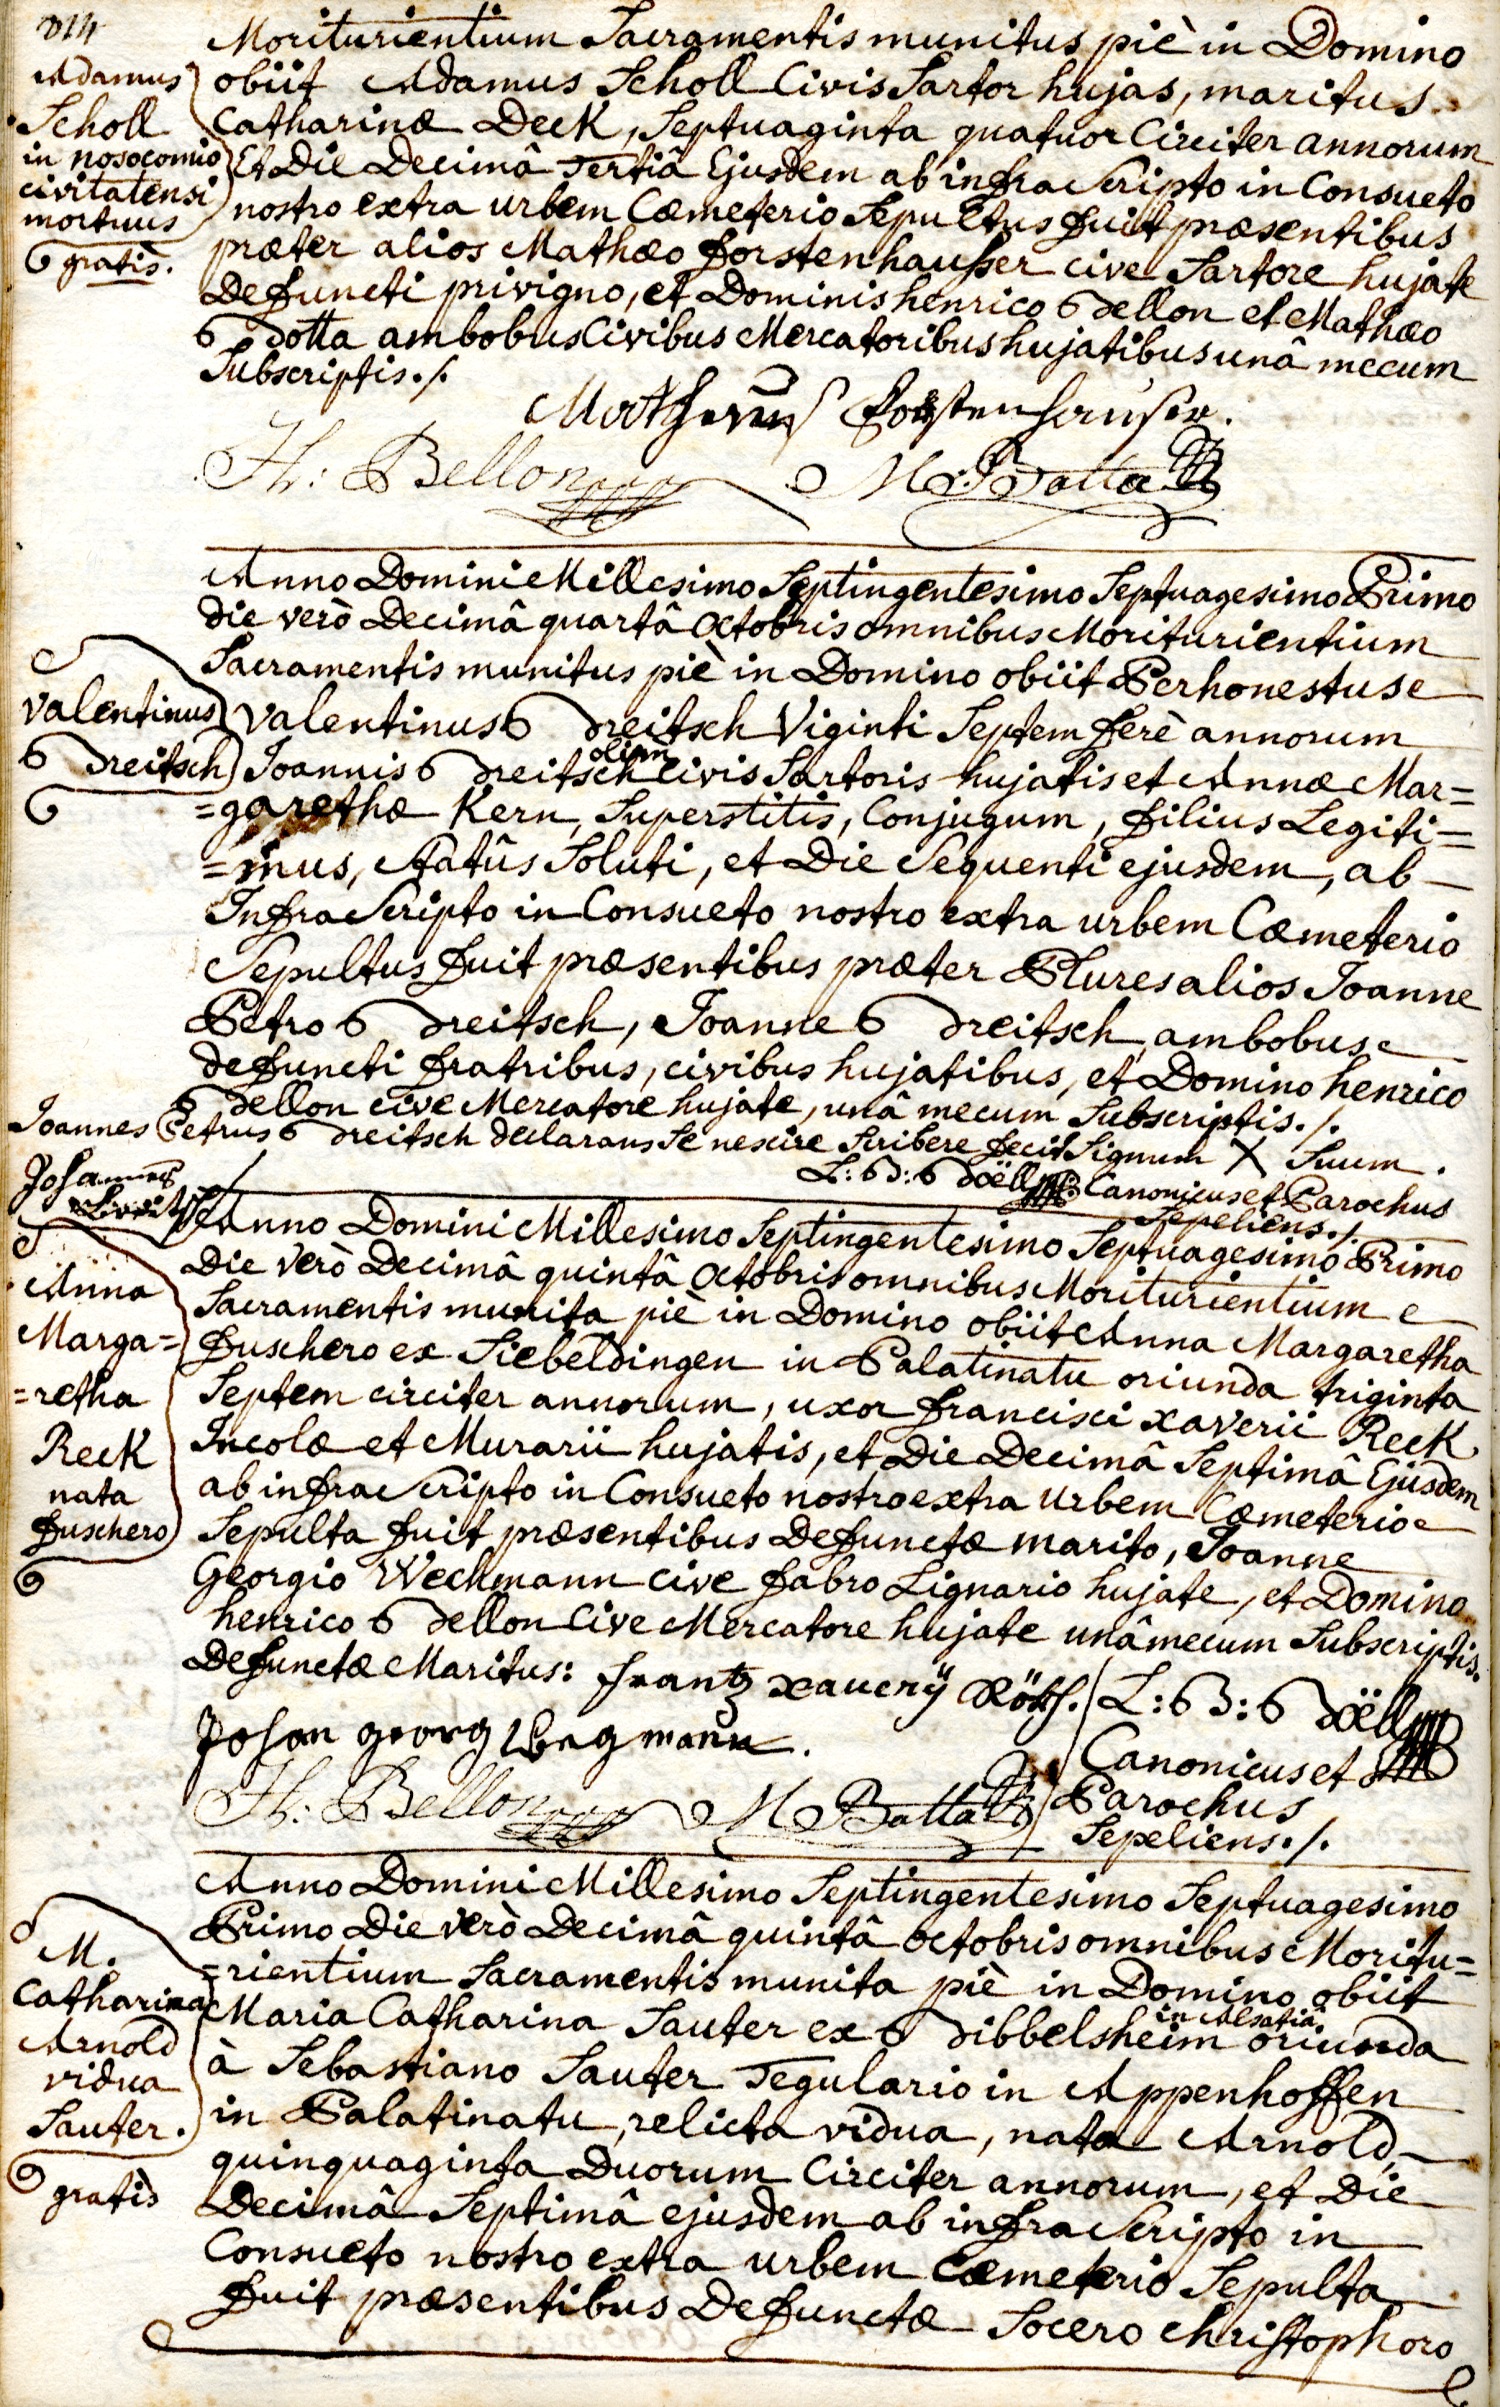 814
Moriturientium Sacramentis munitus piè in Domino
obiit Adamus Scholl Civis Sartor hujas, maritus
Catharinæ Deck, Septuaginta quatuor Circiter annorum
Et Die Decimâ Tertiâ Ejusdem ab infra Scripto in Consueto
nostro extra urbem Cœmeterio Sepultus fuit præsentibus
præter alios Mathæo forstenhausser cive Sartore hujate
Defuncti privigno, et Dominis henrico Bellon et Mathæo
Batta ambobus Civibus Mercatoribus hujatibus unâ mecum
Subscriptis ./.
Adamus
Scholl
in nosocomio
civitatensi
mortuus
gratis.
Matheus Forstenhauser.
H: Bellon M: Batta
Anno Domini Millesimo Septingentesimo Septuagesimo Primo
die verò Decimâ quartâ octobris omnibus Moriturientium
Sacramentis munitus piè in Domino obiit Perhonestus
Valentinus Breitsch Viginti Septem ferè annorum
Joannis Breitsch olim civis Sartoris hujatis et Annæ Mar=
=garethæ Kern, Superstitis, Conjugum, filius Legiti=
=mus, Statûs Soluti, et Die Sequenti ejusdem, ab
Infra Scripto in Consueto nostro extra urbem Cœmeterio
Sepultus fuit præsentibus præter Plures alios Joanne
Petro Breitsch, Joanne Breitsch ambobus
defuncti fratribus, civibus hujatibus, et Domino henrico
Bellon cive Mercatore hujate, unâ mecum Subscriptis ./.
Valentinus
Breitsch
Joannes Petrus Breitsch declarans Se nescire Scribere fecit Signum X Suum.
L: B: Boëll Canonicus et Parochus
Sepeliens ./.
Johannes
Anno Domini Millesimo Septingentesimo Septuagesimo Primo
Die verò Decimâ quintâ octobris omnibus Moriturientium
Sacramentis munita piè in Domino obiit Anna Margaretha
fuschero ex Siebeldingen in Palatinatu oriunda triginta
Septem circiter annorum, uxor francisci xaverii Reck
Incolæ et Murarii hujatis, et Die Decimâ Septimâ Ejusdem
ab infra Scripto in Consueto nostro extra urbem Cœmeterio
Sepulta fuit præsentibus Defunctæ marito, Joanne
Georgio Weckmann cive fabro Lignario hujate, et Domino
henrico Bellon Cive Mercatore hujate unâ mecum Subscriptis.
Anna
Marga=
=retha
Reck
nata
fuschero
Defunctæ Maritus: frantz xaverÿ
Johan georg Wegmann.
H: Bellon M Batta
L: B: Boëll
Canonicus et
Parochus
Sepeliens ./.
Anno Domini Millesimo Septingentesimo Septuagesimo
Primo Die verò Decimâ quintâ octobris omnibus Moritu=
=rientium Sacramentis munita piè in Domino obiit
Maria Catharina Sauter ex Bibbelsheim in Alsatiâ oriunda
à Sebastiano Sauter Tegulario in Appenhoffen
in Palatinatu, relicta vidua, nata Arnold,
quinquaginta Duorum Circiter annorum, et Die
Decimâ Septimâ ejusdem ab infra Scripto in
Consueto nostro extra urbem Cœmeterio Sepulta
fuit præsentibus Defunctæ Socero Christophoro
M.
Catharina
Arnold
vidua
Sauter.
gratis